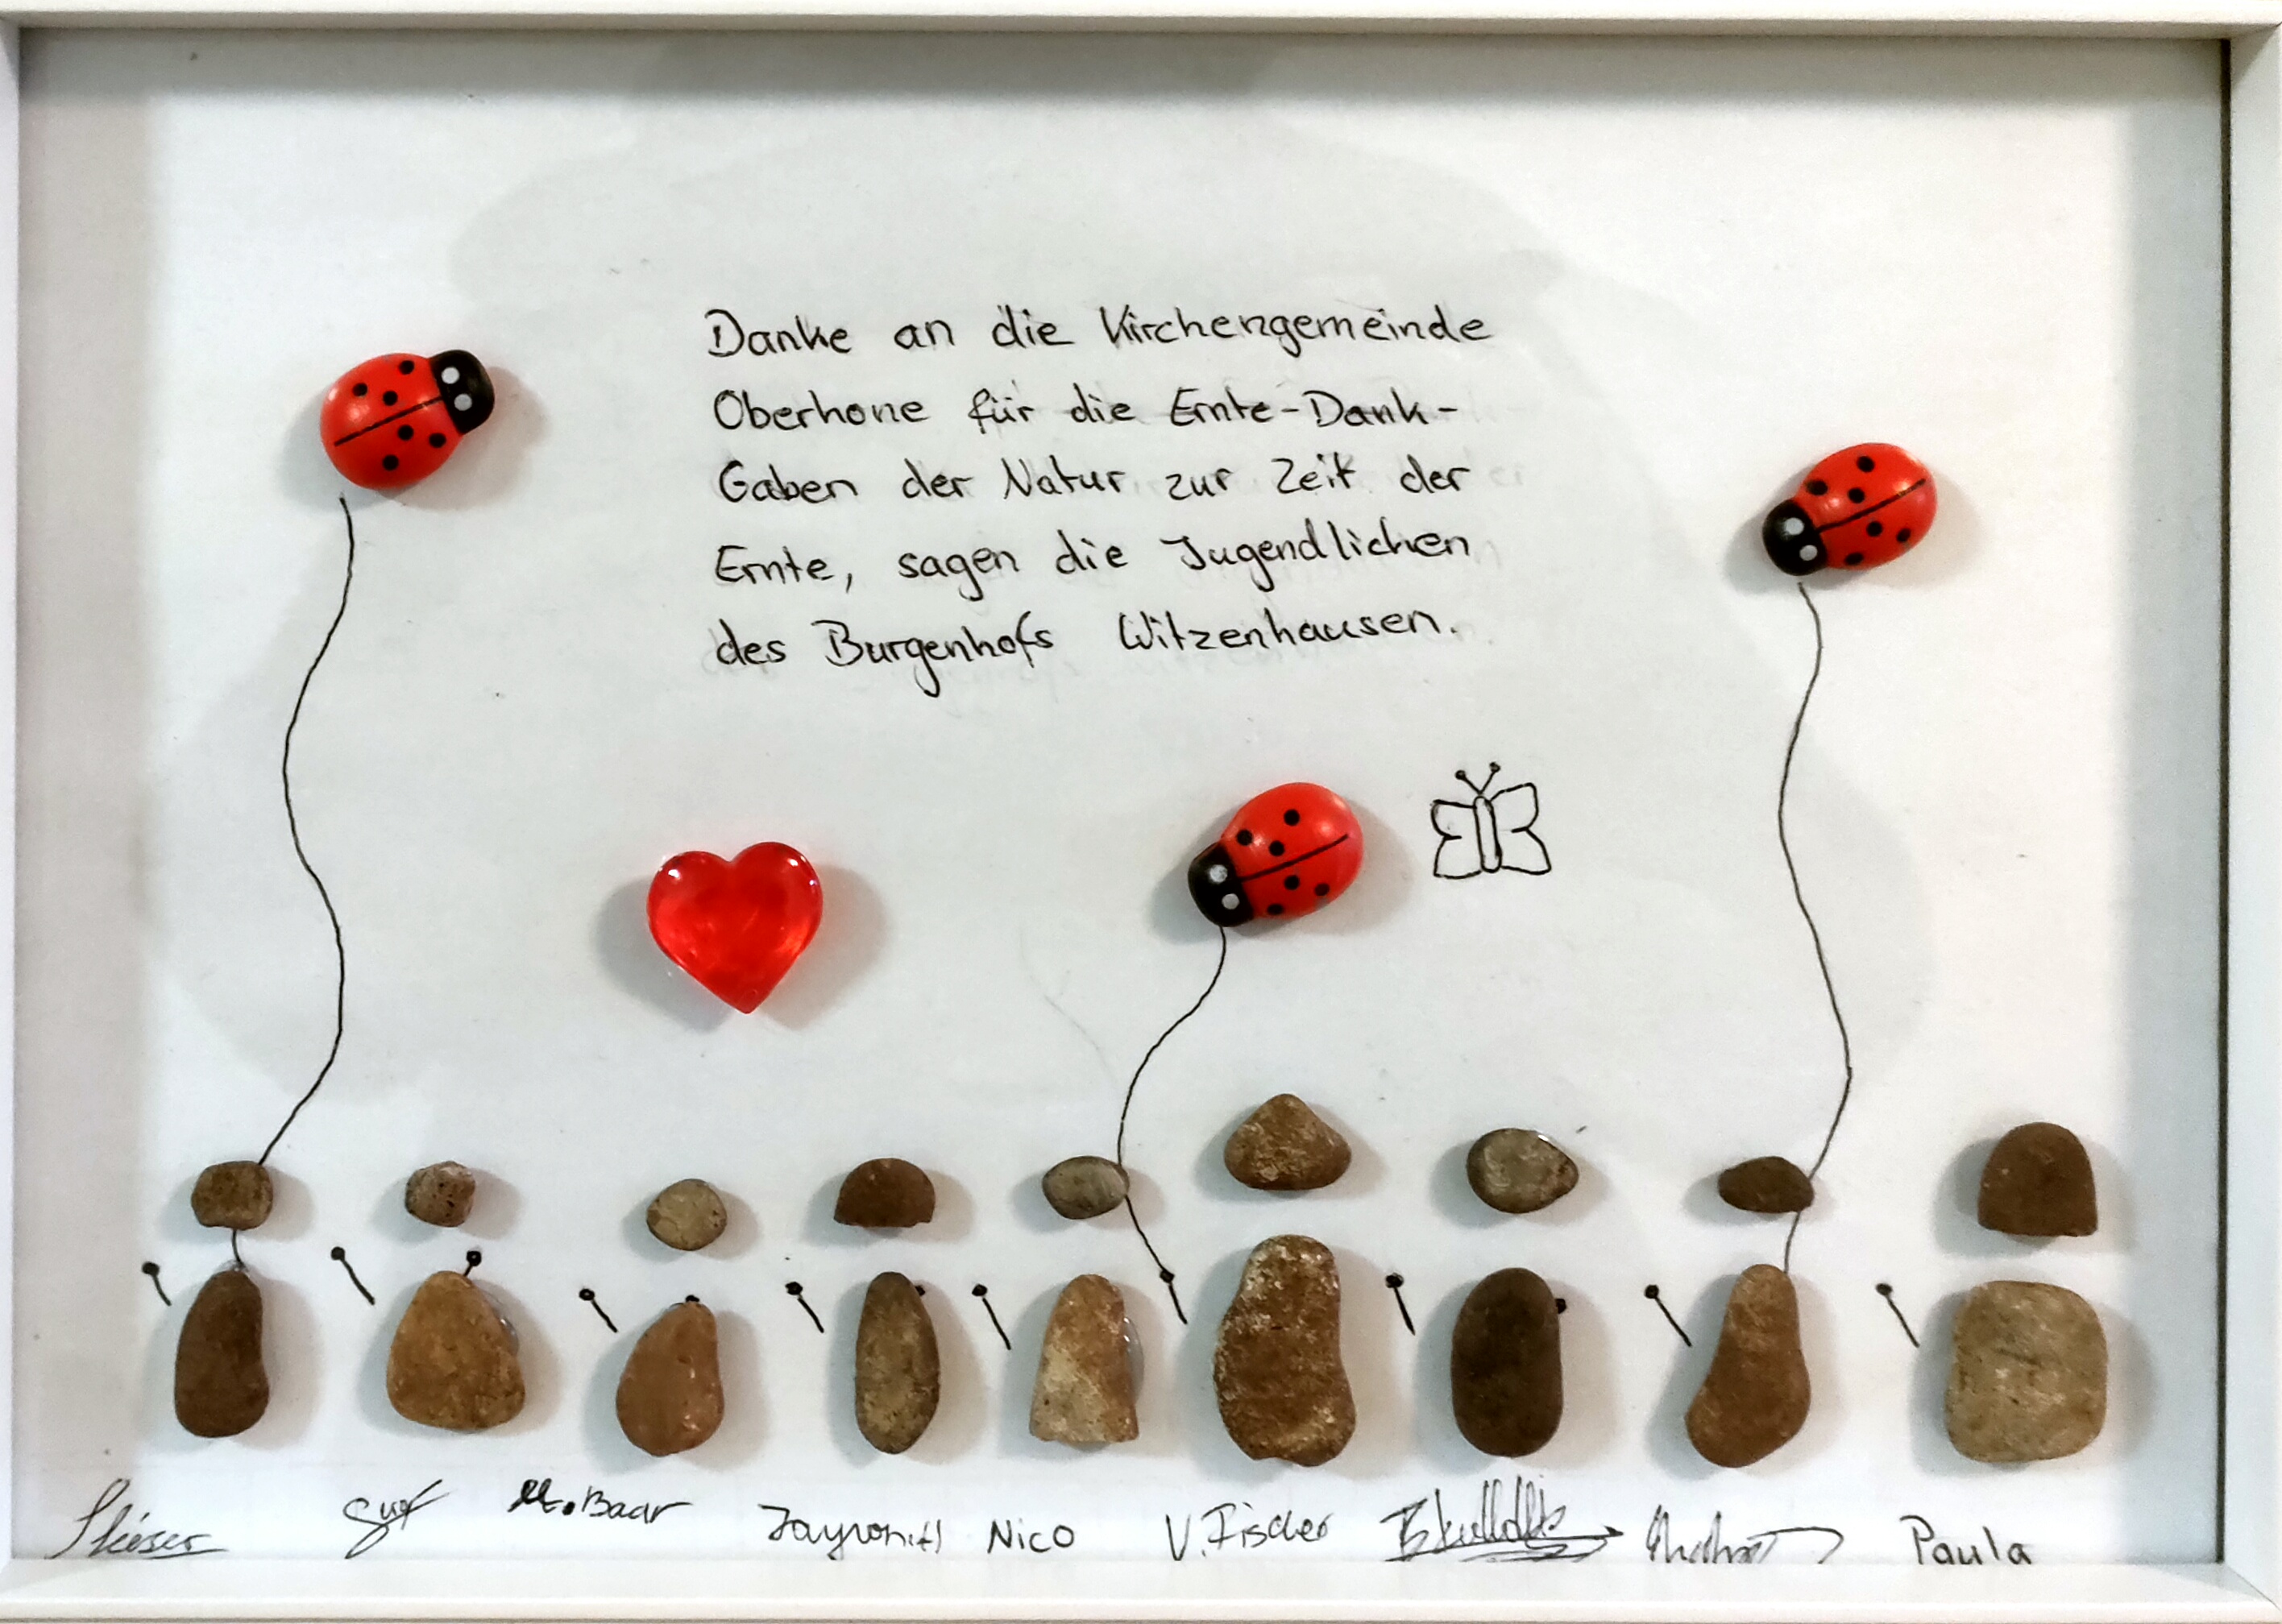 Danke an die Kirchengemeinde
Oberhone für die Ernte-Dank-
Gaben der Natur zur Zeit der
Ernte, sagen die Jugendlichen
des Burgenhofs Witzenhausen.
M. Baar Nico V. Fischer Paula